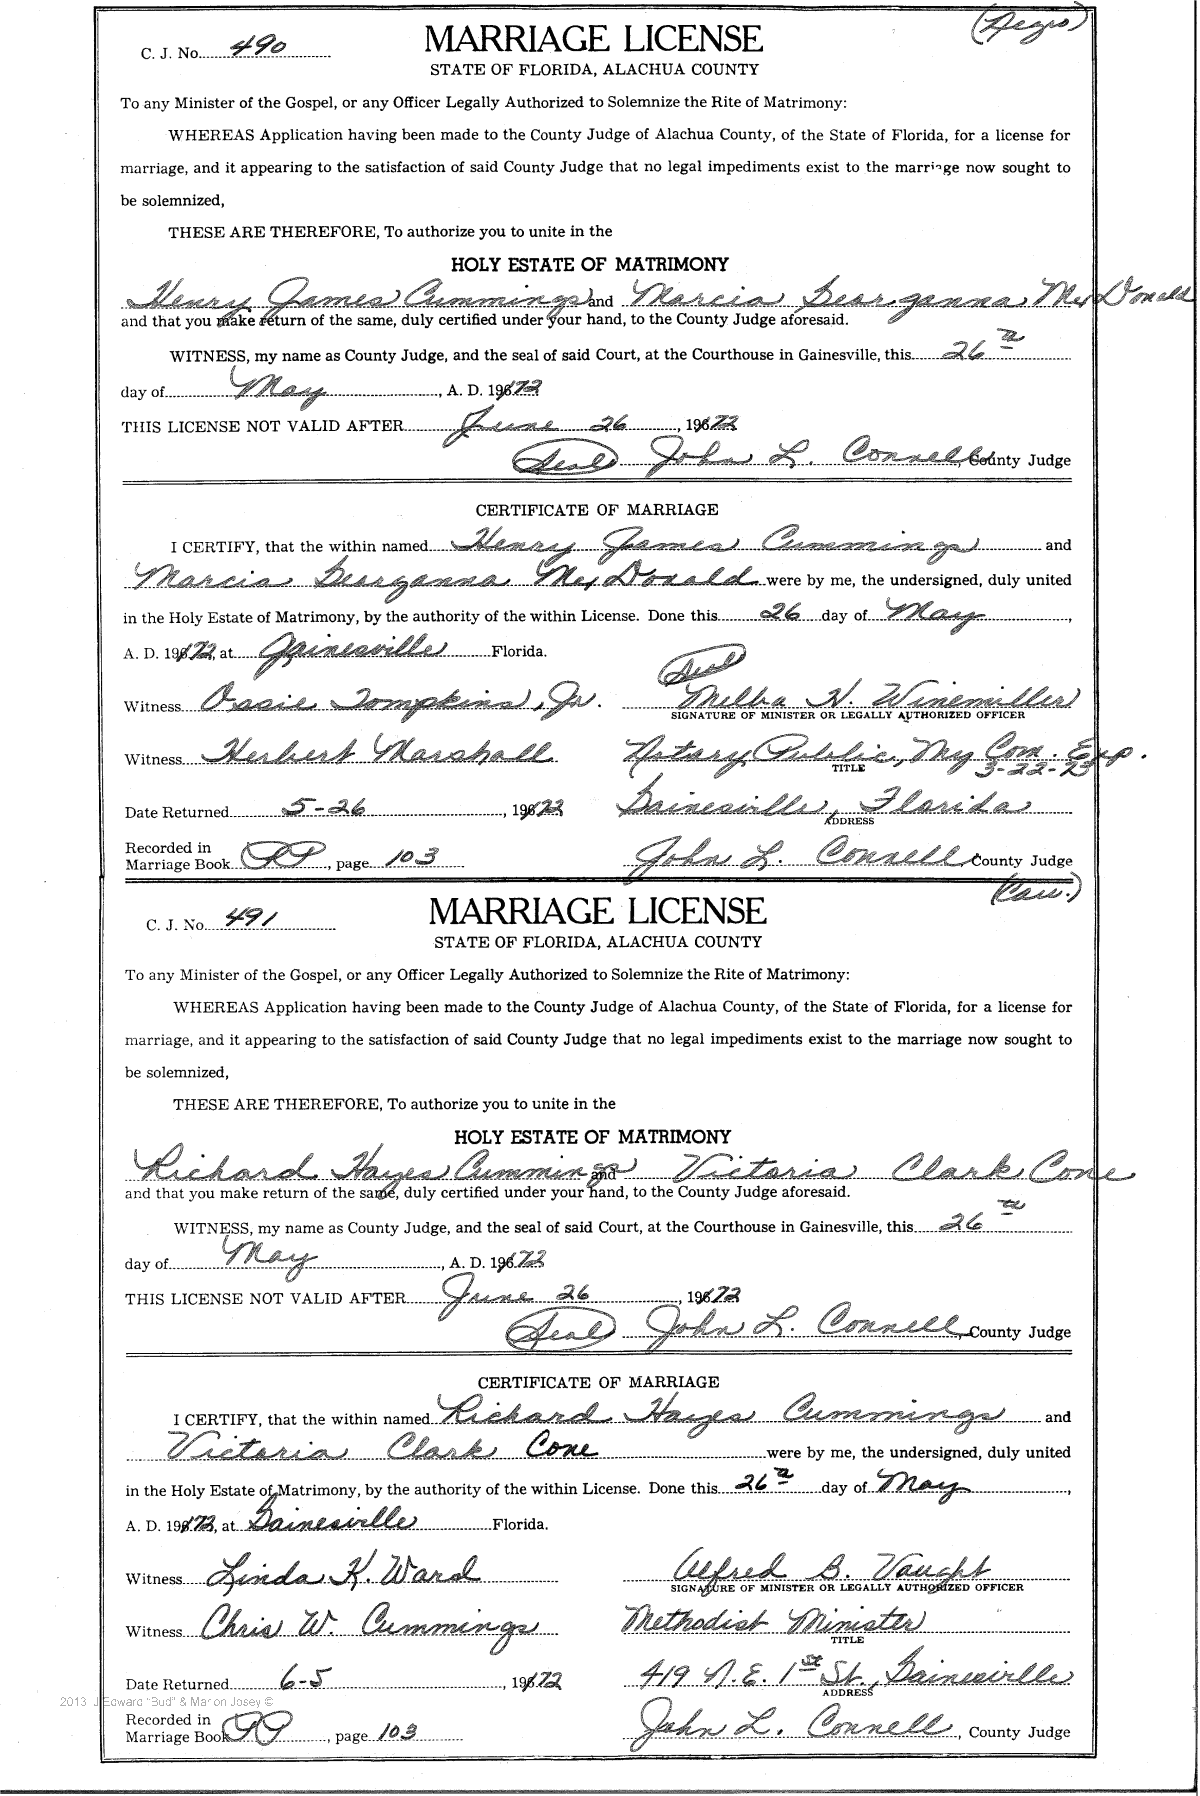 (Negro)
C. J. No. 490
MARRIAGE LICENSE
STATE OF FLORIDA, ALACHUA COUNTY
To any Minister of the Gospel, or any Officer Legally Authorized to Solemnize the Rite of Matrimony:
WHEREAS Application having been made to the County Judge of Alachua County, of the State of Florida, for a license for
marriage, and it appearing to the satisfaction of said County Judge that no legal impediments exist to the marriage now sought to
be solemnized,
THESE ARE THEREFORE, To authorize you to unite in the
HOLY ESTATE OF MATRIMONY
Henry James Cummings and Marcia Gearganna McDonald
and that you make return of the same, duly certified under your hand, to the County Judge aforesaid.
WITNESS, my name as County Judge, and the seal of said Court, at the Courthouse in Gainesville, this 26th
day of May, A. D. 1972
THIS LICENSE NOT VALID AFTER June 26, 1972
(Seal) John L. Connell, County Judge
CERTIFICATE OF MARRIAGE
I CERTIFY, that the within named Henry James Cummings and
Marcia Gearganna McDonald were by me, the undersigned, duly united
in the Holy Estate of Matrimony, by the authority of the within License. Done this 26 day of May,
A. D. 1972, at Gainesville Florida.
(Seal)
Witness Ossie Tompkins, Jr. Melba H. Winemiller
SIGNATURE OF MINISTER OR LEGALLY AUTHORIZED OFFICER
Witness Herbert Marshall Notary Public, My Com. Exp.
TITLE 3-22-73
Date Returned 5-26, 1972 Gainesville, Florida
ADDRESS
Recorded in
Marriage Book PP, page 103 John L. Connell, County Judge
(Cau.)
C. J. No. 491
MARRIAGE LICENSE
STATE OF FLORIDA, ALACHUA COUNTY
To any Minister of the Gospel, or any Officer Legally Authorized to Solemnize the Rite of Matrimony:
WHEREAS Application having been made to the County Judge of Alachua County, of the State of Florida, for a license for
marriage, and it appearing to the satisfaction of said County Judge that no legal impediments exist to the marriage now sought to
be solemnized,
THESE ARE THEREFORE, To authorize you to unite in the
HOLY ESTATE OF MATRIMONY
Richard Hayes Cummings and Victoria Clark Cone
and that you make return of the same, duly certified under your hand, to the County Judge aforesaid.
WITNESS, my name as County Judge, and the seal of said Court, at the Courthouse in Gainesville, this 26th
day of May, A. D. 1972
THIS LICENSE NOT VALID AFTER June 26, 1972
(Seal) John L. Connell, County Judge
CERTIFICATE OF MARRIAGE
I CERTIFY, that the within named Richard Hayes Cummings and
Victoria Clark Cone were by me, the undersigned, duly united
in the Holy Estate of Matrimony, by the authority of the within License. Done this 26th day of May,
A. D. 1972, at Gainesville Florida.
Witness Linda K. Ward Alfred B. Vaught
SIGNATURE OF MINISTER OR LEGALLY AUTHORIZED OFFICER
Witness Chris W. Cummings Methodist Minister
TITLE
Date Returned 6-5, 1972 419 N.E. 1st St., Gainesville
ADDRESS
2013 J Edward "Bud" & Marion Josey ©
Recorded in
Marriage Book PP, page 103 John L. Connell, County Judge